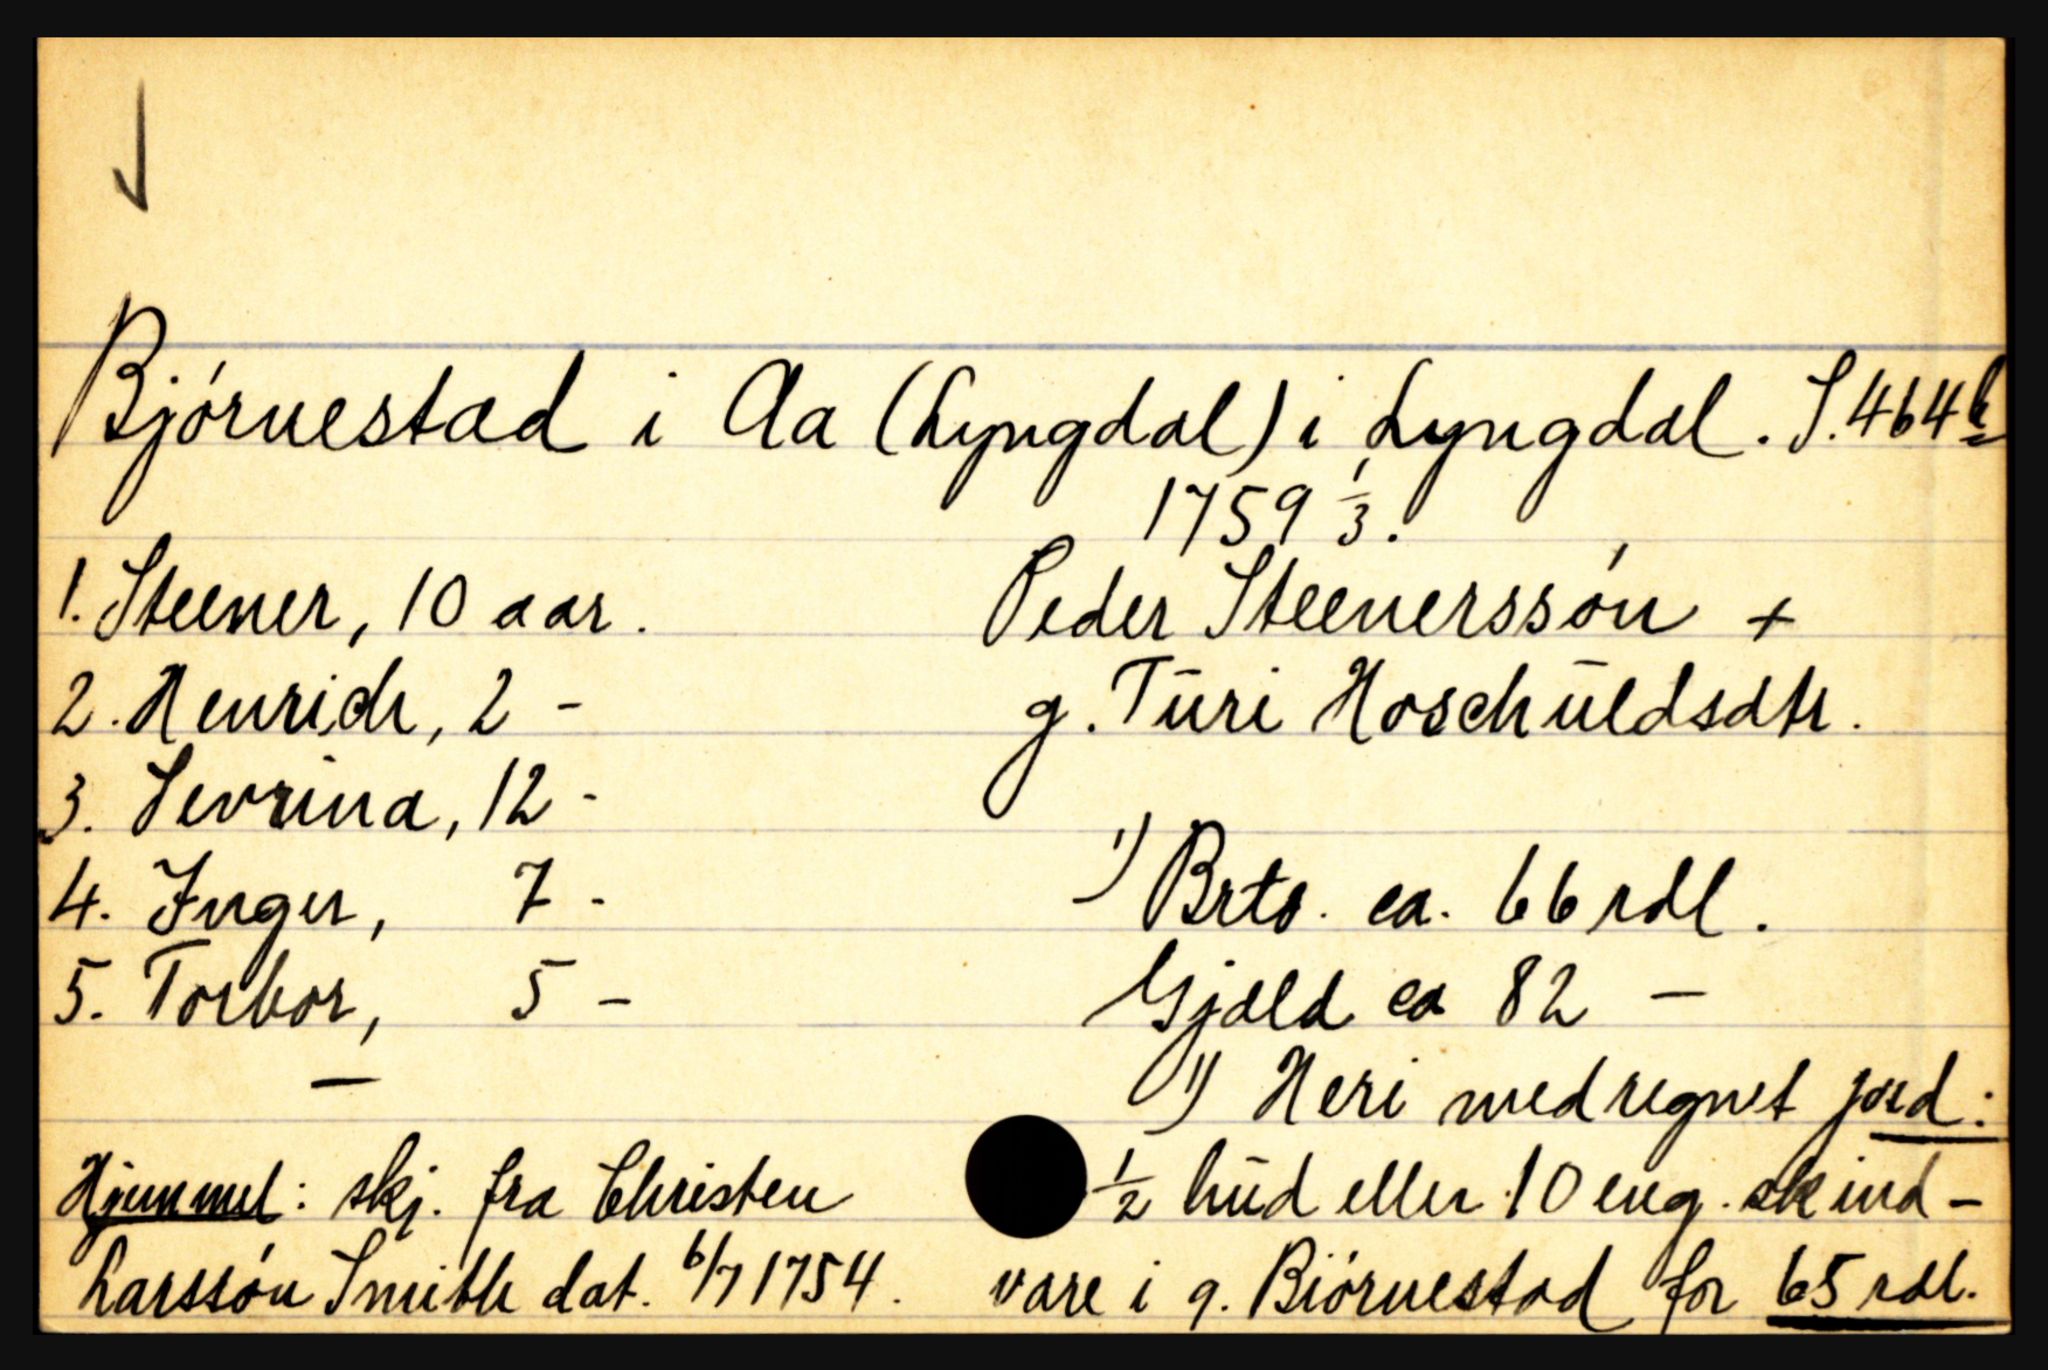 Bjórnestad i Aa (Lyngdal) i Lyngdal. S. 464b
1759 1/3.
1. Steener, 10 aar.
2. Henrich, 2 -
3. Sevrina, 12 -
4. Inger, 7 -
5. Torbor, 5 -
—
Hjemmel: skj. fra Christen
Larssón Smith dat. 6/7 1754.
Peder Steenerssón +
g. Turi Hoschuldsdtr.
1) Brto. ca. 66 rdl.
Gjæld ca 82 —
1) Heri medregnet jord:
1/2 hud eller 10 eng. skind-
vare i g. Biórnestad for 65 rdl.